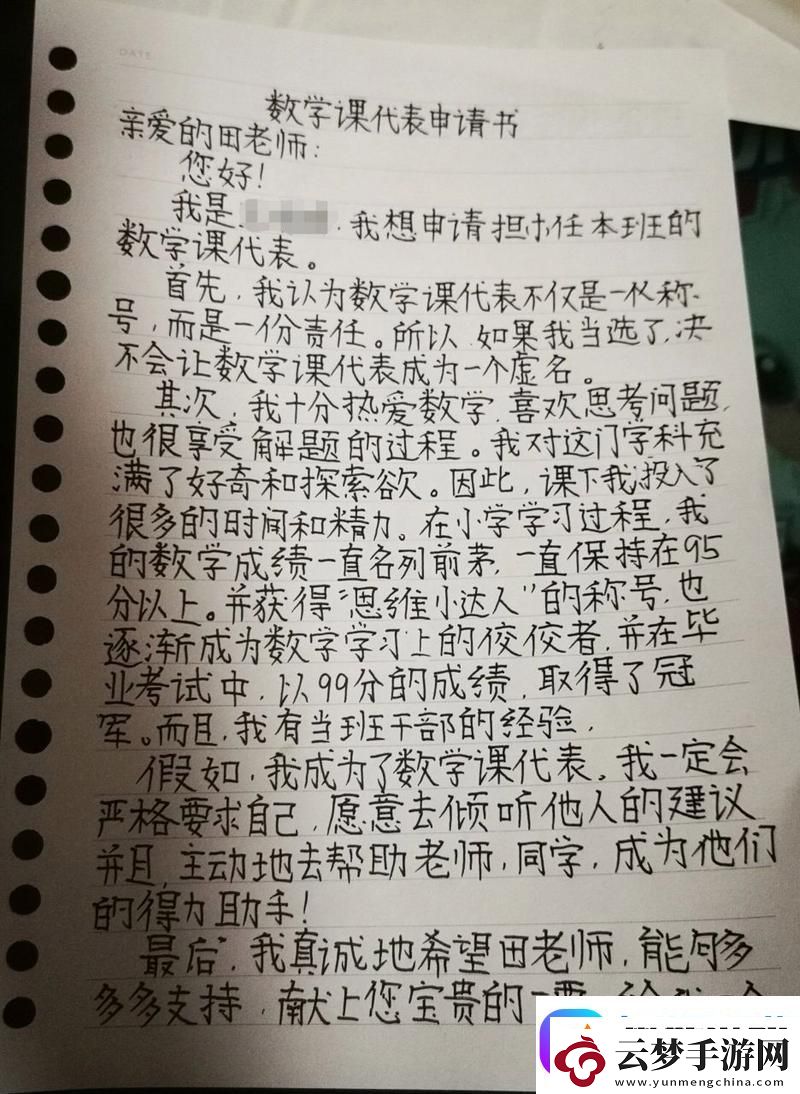 DATE
数学课代表申请书
亲爱的田老师：
您好！
我是 ，我想申请担任本班的
数学课代表。
首先，我认为数学课代表不仅是一份称
号，而是一份责任。所以 如果我当选了，决
不会让数学课代表成为一个虚名。
其次，我十分热爱数学，喜欢思考问题，
也很享受解题的过程。我对这门学科充
满了好奇和探索欲。因此，课下我投入了
很多的时间和精力。在小学学习过程，我
的数学成绩一直名列前茅，一直保持在95
分以上。并获得“思维小达人”的称号，也
逐渐成为数学学习上的佼佼者，并在毕
业考试中，以99分的成绩，取得了冠
军。而且，我有当班干部的经验，
假如，我成为了数学课代表。我一定会
严格要求自己，愿意去倾听他人的建议
并且，主动地去帮助老师，同学，成为他们
的得力助手！
最后，我真诚地希望田老师，能够多
多多支持，献上您宝贵的一票
云梦手游网
www.yunmengchina.com